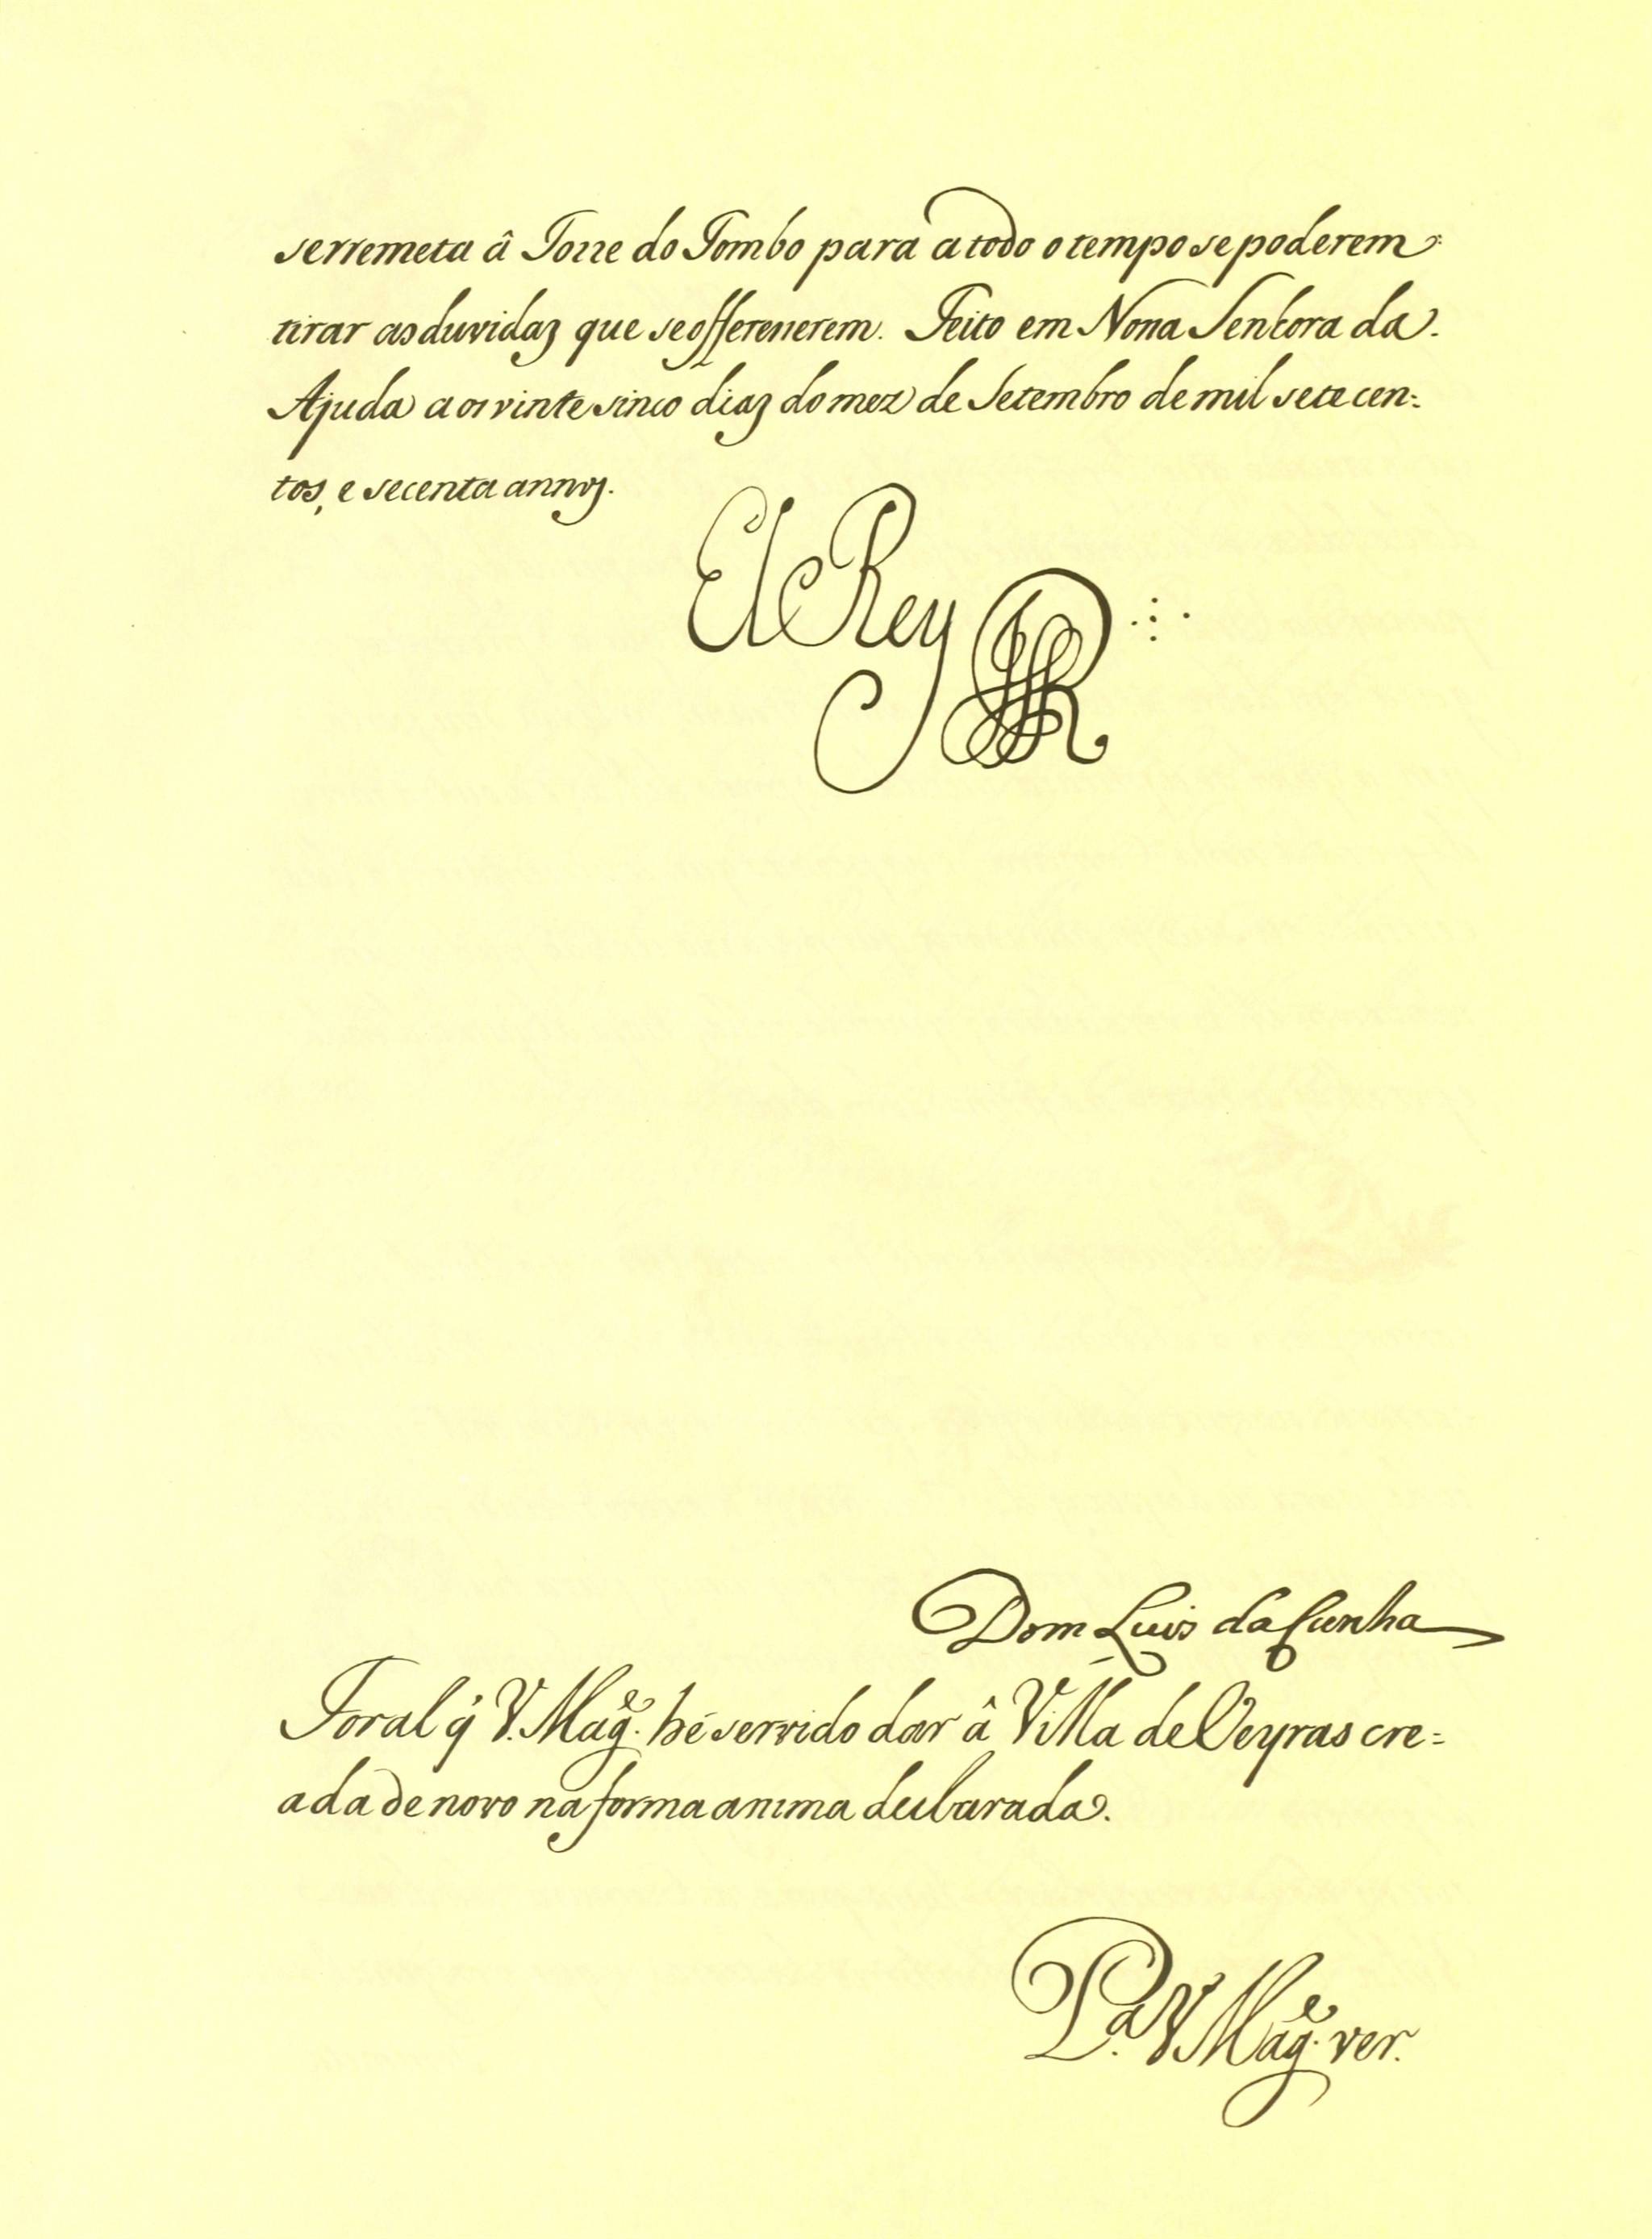 serremeta â Torre do Tombo para a todo o tempo se poderem
tirar as duvidas que se offerecerem. Feito em Nossa Senhora da
Ajuda aos vinte sinco dias do mez de Setembro de mil sete cen-
tos, e secenta annos.
El Rey
Dom Luis da Cunha
Foral q̃ V. Mag.^e hé servido dar â Villa de Oeyras cre-
ada de novo na forma assima declarada.
P.^a V Mag.^e ver.